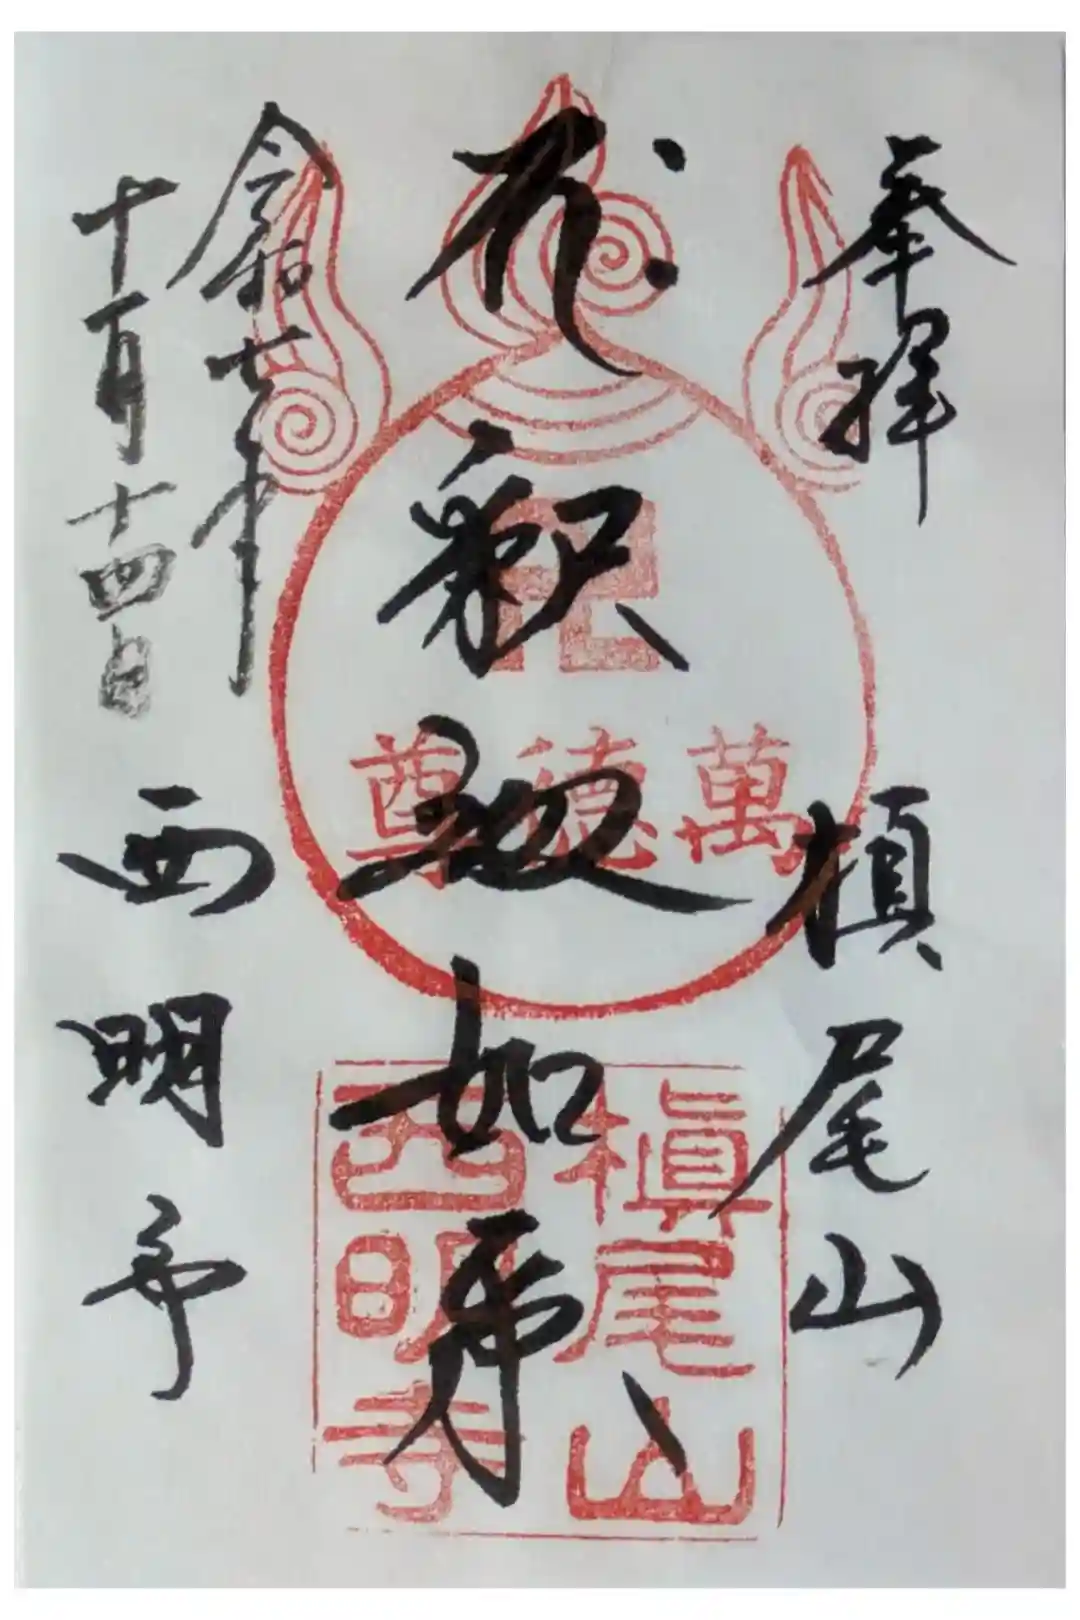 奉拝
槇尾山
釈迦如来
令和七年
十月十四日
西明寺
卍
萬徳尊
槇尾山
西明寺